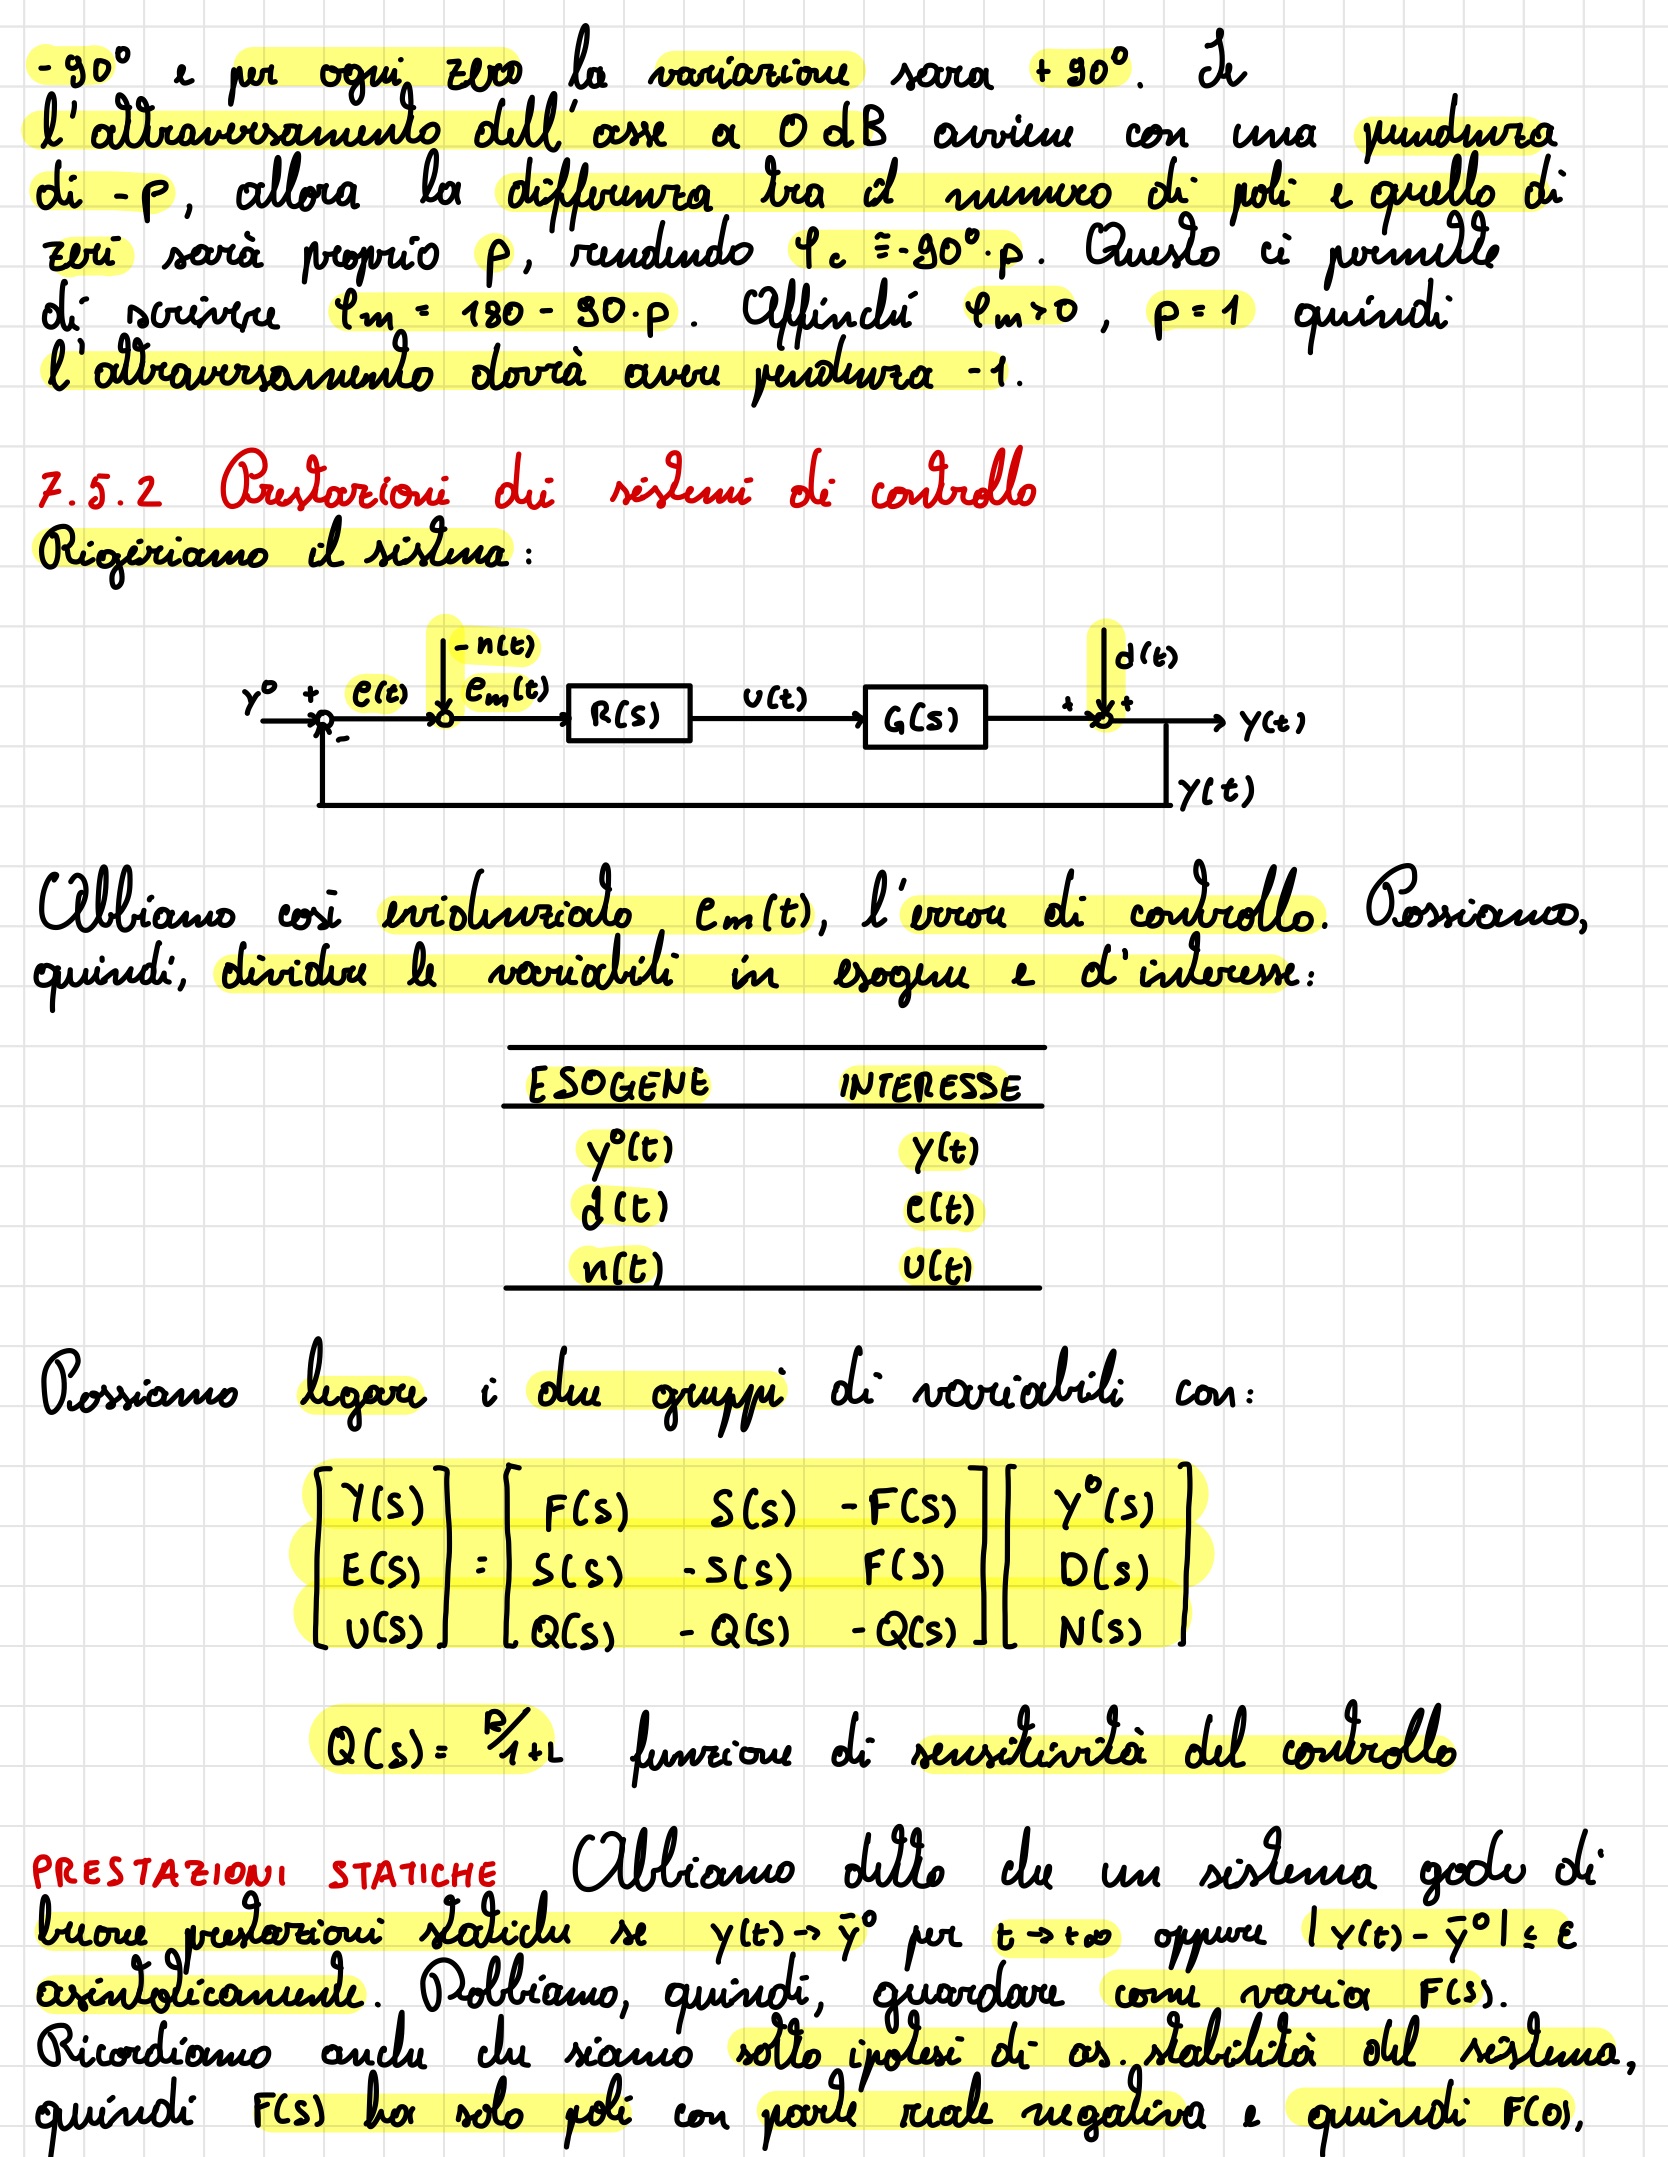 -90° e per ogni zero la variazione sara +90°. Se
l'attraversamento dell'asse a 0 dB avviene con una pendenza
di -p, allora la differenza tra il numero di poli e quello di
zeri sarà proprio p, rendendo φc ≅ -90°·p. Questo ci permette
di scrivere φm = 180 - 90·p. Affinché φm>0, p=1 quindi
l'attraversamento dovrà avere pendenza -1.
7.5.2 Prestazioni dei sistemi di controllo
Rigeriamo il sistema:
-n(t)
d(t)
y° + e(t) em(t) R(s) u(t) G(s) + + y(t)
-
y(t)
Abbiamo così evidenziato em(t), l'errore di controllo. Possiamo,
quindi, dividere le variabili in esogene e d'interesse:
ESOGENE INTERESSE
y°(t) y(t)
d(t) e(t)
n(t) u(t)
Possiamo legare i due gruppi di variabili con:
[Y(s)] = [F(s) S(s) -F(s)] [Y°(s)]
[E(s)] [S(s) -S(s) F(s)] [D(s)]
[U(s)] [Q(s) -Q(s) -Q(s)] [N(s)]
Q(s) = R/1+L funzione di sensitività del controllo
PRESTAZIONI STATICHE Abbiamo detto che un sistema gode di
buone prestazioni statiche se y(t)→ȳ° per t→+∞ oppure |y(t)-ȳ°| ≤ ε
asintoticamente. Dobbiamo, quindi, guardare come varia F(s).
Ricordiamo anche che siamo sotto ipotesi di as. stabilità del sistema,
quindi F(s) ha solo poli con parte reale negativa e quindi F(0),